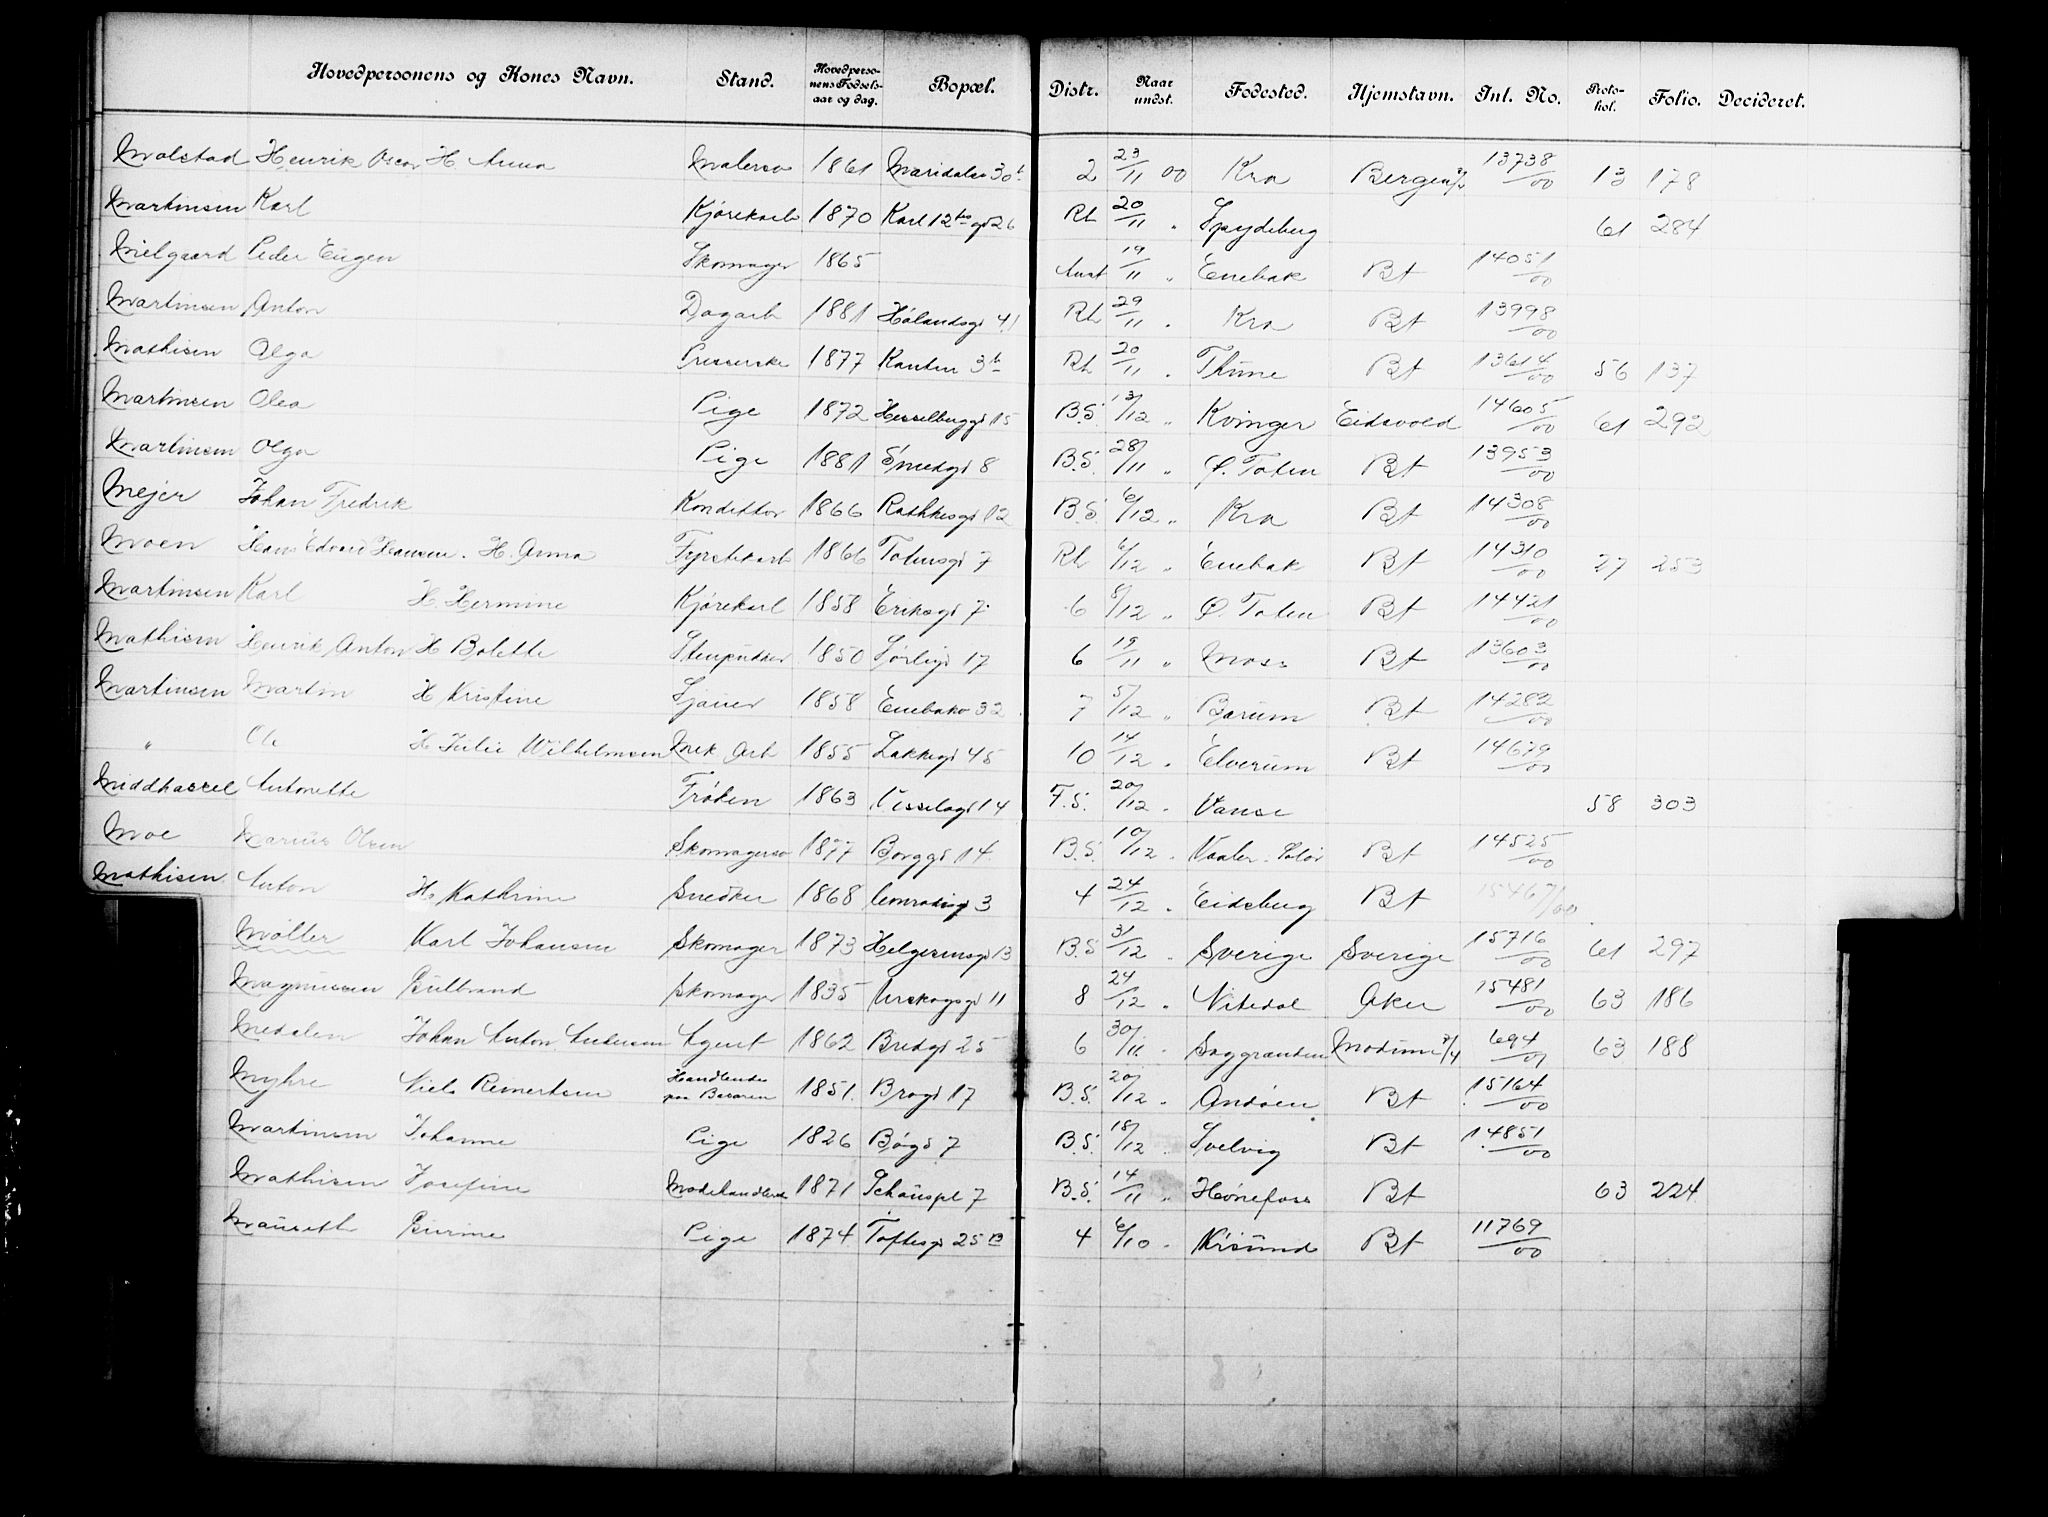 Hovedpersonens og Kones Navn. Stand. Hovedperso-nens Fødsels-aar og dag. Bopæl. Distr. Naar undst. Fødested. Hjemstavn. Inl. No. Proto-kol. Folio. Decideret.
Molstad Henrik Oscar H. Anna Malersv 1861 Maridalsv 30b 2 23/11 00 Kra Bergen 13738/00 13 178
Martinsen Karl Kjørekarl 1870 Karl 12tes gd 26 Rh 20/11 " Spydeberg 61 284
Mielgaard Peder Eugen Skomager 1865 Aust 19/11 " Enebak Bt 14051/00
Martinsen Anton Dagarb 1881 Hølandsgd 41 Rh 29/11 " Kra Bt 13998/00
Mathisen Olga Presserske 1877 Ranten 3b Rh 20/11 " Thune Bt 13614/00 56 137
Martinsen Olea Pige 1872 Hesselberggd 15 B.S. 13/12 " Kvinger Eidsvold 14605/00 61 292
Martinsen Olga Pige 1881 Smedgd 8 B.S. 28/11 " Ø. Toten Bt 13953/00
Mejer Johan Fredrik Konditor 1866 Rathkesgd 12 B.S. 6/12 " Kra Bt 14308/00
Moen Hans Edvard Hansen. H. Anna Fyrstikarb 1866 Totensgd 7 Rh 6/12 " Enebak Bt 14310/00 27 253
Martinsen Karl H. Hermine Kjørekarl 1858 Eriksgd 7 6 8/12 " Ø. Toten Bt 14421/00
Mathisen Henrik Anton H Bolette Stenpukker 1850 Sørligd 17 6 19/11 " Moss Bt 13603/00
Martinsen Martin H Kristine Sjauer 1858 Enebakv 32 7 5/12 " Bærum Bt 14282/00
" Ole H Julie Wilhelmsen Mek Arb 1855 Lakkegd 45 10 14/12 " Elverum Bt 14679/00
Middhassel Antonette Frøken 1863 Visselsgd 14 F.S. 20/12 " Vanse 58 303
Moe Marius Olsen Skomagersv 1877 Borggd 14 B.S. 10/12 " Vaaler Solør Bt 14525/00
Mathisen Anton H. Kathrine Snedker 1868 Conradisgd 3 4 24/12 " Eidsberg Bt 15467/00
Møller Karl Johansen Skomager 1873 Helgesensgd 13 B.S 31/12 " Sverige Sverige 15716/00 61 297
Magnussen Gulbrand Skomager 1835 Urskogsgd 11 8 24/12 " Nitedal Aker 15481/00 63 186
Medalen Johan Anton Andersen Agent 1862 Bredgd 25 6 30/11 " Saggranden Modum 7/4 694/01 63 188
Myhre Niels Reinertsen Handlende paa Basaren 1851 Brogd 17 B.S. 20/12 " Andøen Bt 15164/00
Martinsen Johanne Pige 1826 Bøgd 7 B.S. 18/12 " Svelvig Bt 14851/00
Mathisen Josefine Modehandlende 1871 Schouspl 7 B.S. 14/11 " Hønefoss Bt 63 224
Mauseth Gurine Pige 1874 Toftesgd 25 B 4 6/10 " Krsund Bt 11769/00